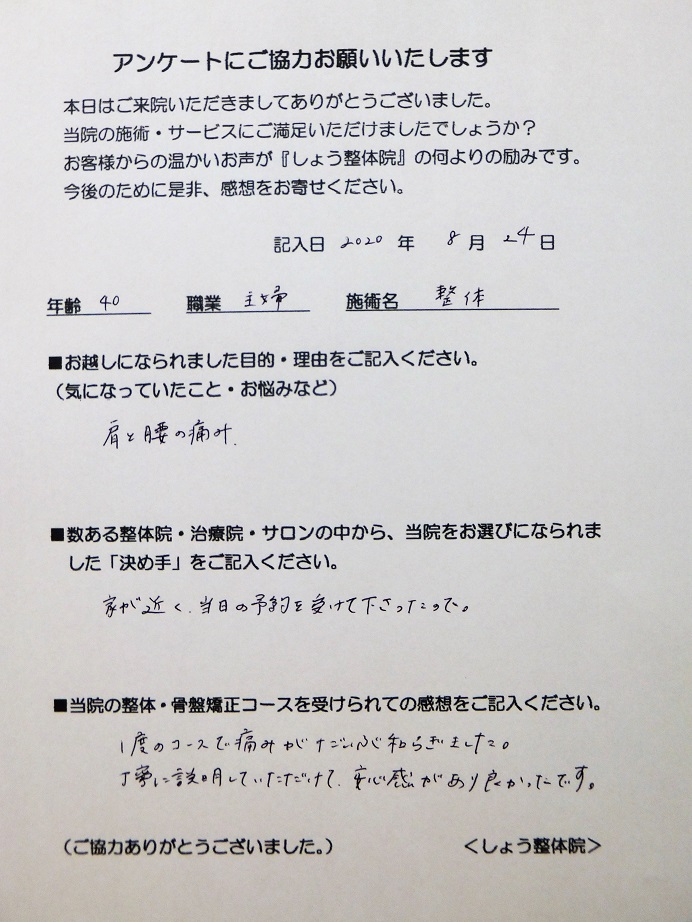 アンケートにご協力お願いいたします
本日はご来院いただきましてありがとうございました。
当院の施術・サービスにご満足いただけましたでしょうか？
お客様からの温かいお声が『しょう整体院』の何よりの励みです。
今後のために是非、感想をお寄せください。
記入日 2020 年 8 月 24 日
年齢 40 職業 主婦 施術名 整体
■お越しになられました目的・理由をご記入ください。
（気になっていたこと・お悩みなど）
肩と腰の痛み.
■数ある整体院・治療院・サロンの中から、当院をお選びになられま
した「決め手」をご記入ください。
家が近く、当日の予約を受けて下さったので。
■当院の整体・骨盤矯正コースを受けられての感想をご記入ください。
1度のコースで痛みがずいぶん和らぎました。
丁寧に説明していただけて、安心感があり良かったです。
（ご協力ありがとうございました。） ＜しょう整体院＞